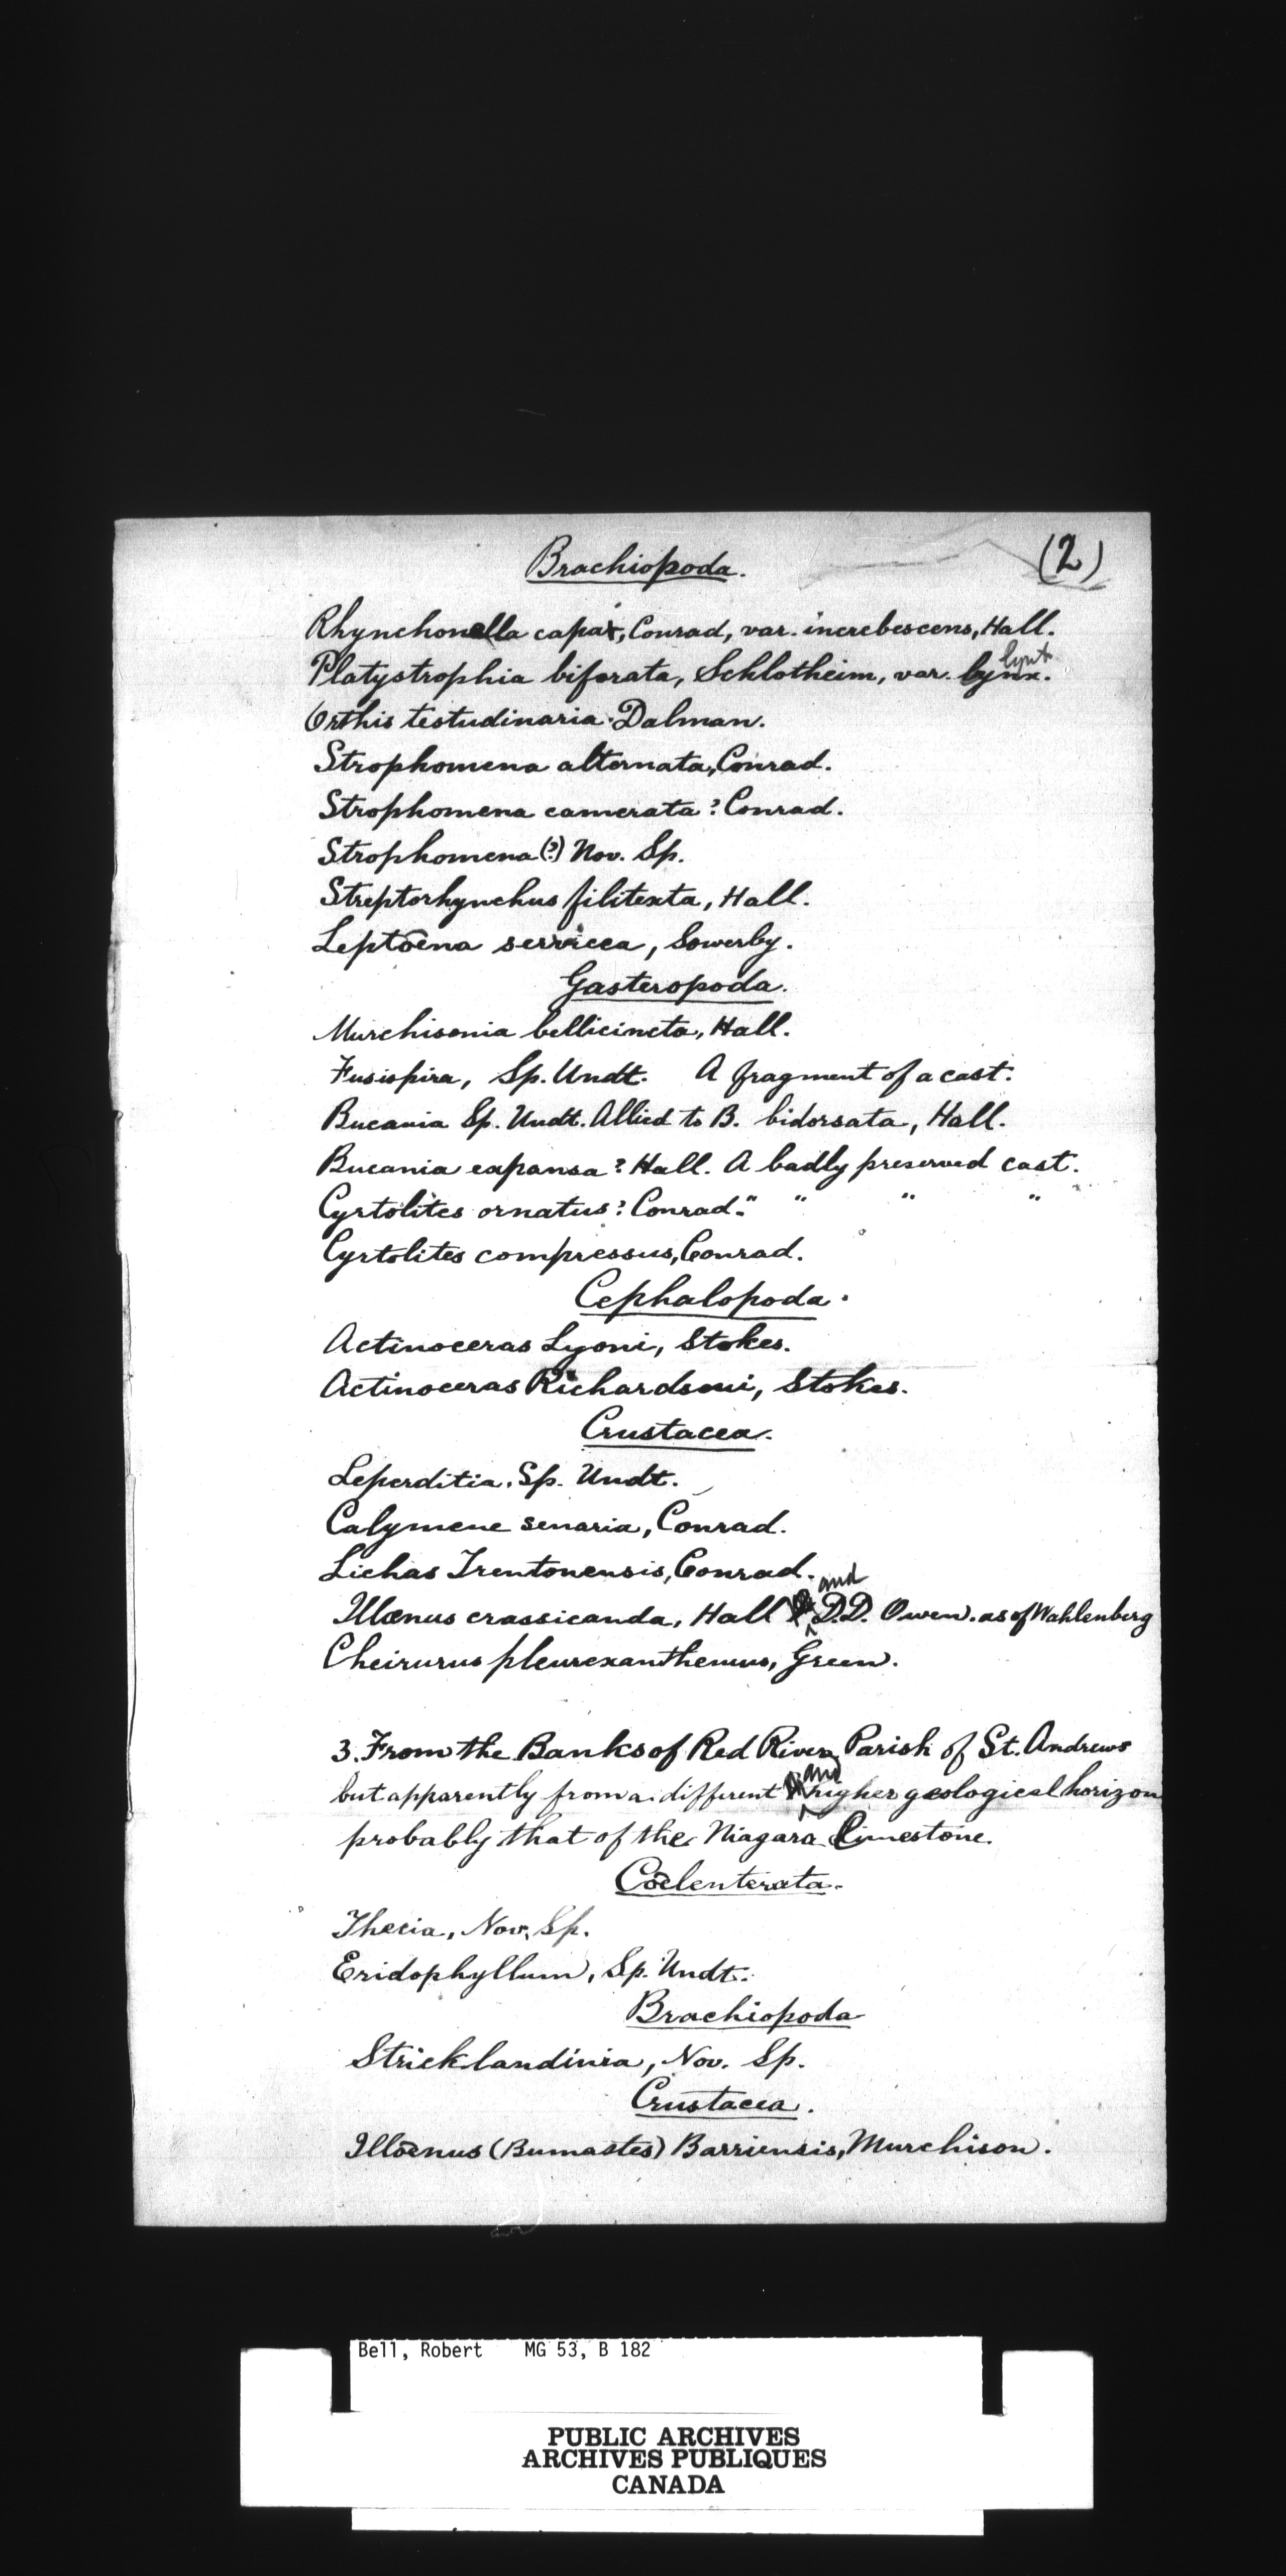 (2)
Brachiopoda.
Rhynchonella capax, Conrad, var. increbescens, Hall.
lynx
Platystrophia biforata, Schlotheim, var. lynx.
Orthis testudinaria. Dalman.
Strophomena alternata, Conrad.
Strophomena camerata? Conrad.
Strophomena (?) Nov. Sp.
Streptorhynchus filitexta, Hall.
Leptœna serricea, Sowerby.
Gasteropoda.
Murchisonia bellicincta, Hall.
Fusispira, Sp. Undt. A fragment of a cast.
Bucania Sp. Undt. Allied to B. bidorsata, Hall.
Bucania expansa? Hall. A badly preserved cast.
Cyrtolites ornatus? Conrad. " " " "
Cyrtolites compressus, Conrad.
Cephalopoda.
Actinoceras Lyoni, Stokes.
Actinoceras Richardsoni, Stokes.
Crustacea.
Leperditia. Sp. Undt.
Calymene senaria, Conrad.
Lichas Trentonensis, Conrad.
and
Illænus crassicauda, Hall D.D. Owen. as of Wahlenberg
Cheirurus pleurexanthemus, Green.
3. From the Banks of Red River, Parish of St. Andrews
and
but apparently from a different higher geological horizon
probably that of the Niagara Limestone.
Cœlenterata.
Thecia, Nov. Sp.
Eridophyllum, Sp. Undt.
Brachiopoda
Stricklandinia, Nov. Sp.
Crustacea.
Illœnus (Bumastes) Barriensis, Murchison.
Bell, Robert MG 53, B 182
PUBLIC ARCHIVES
ARCHIVES PUBLIQUES
CANADA